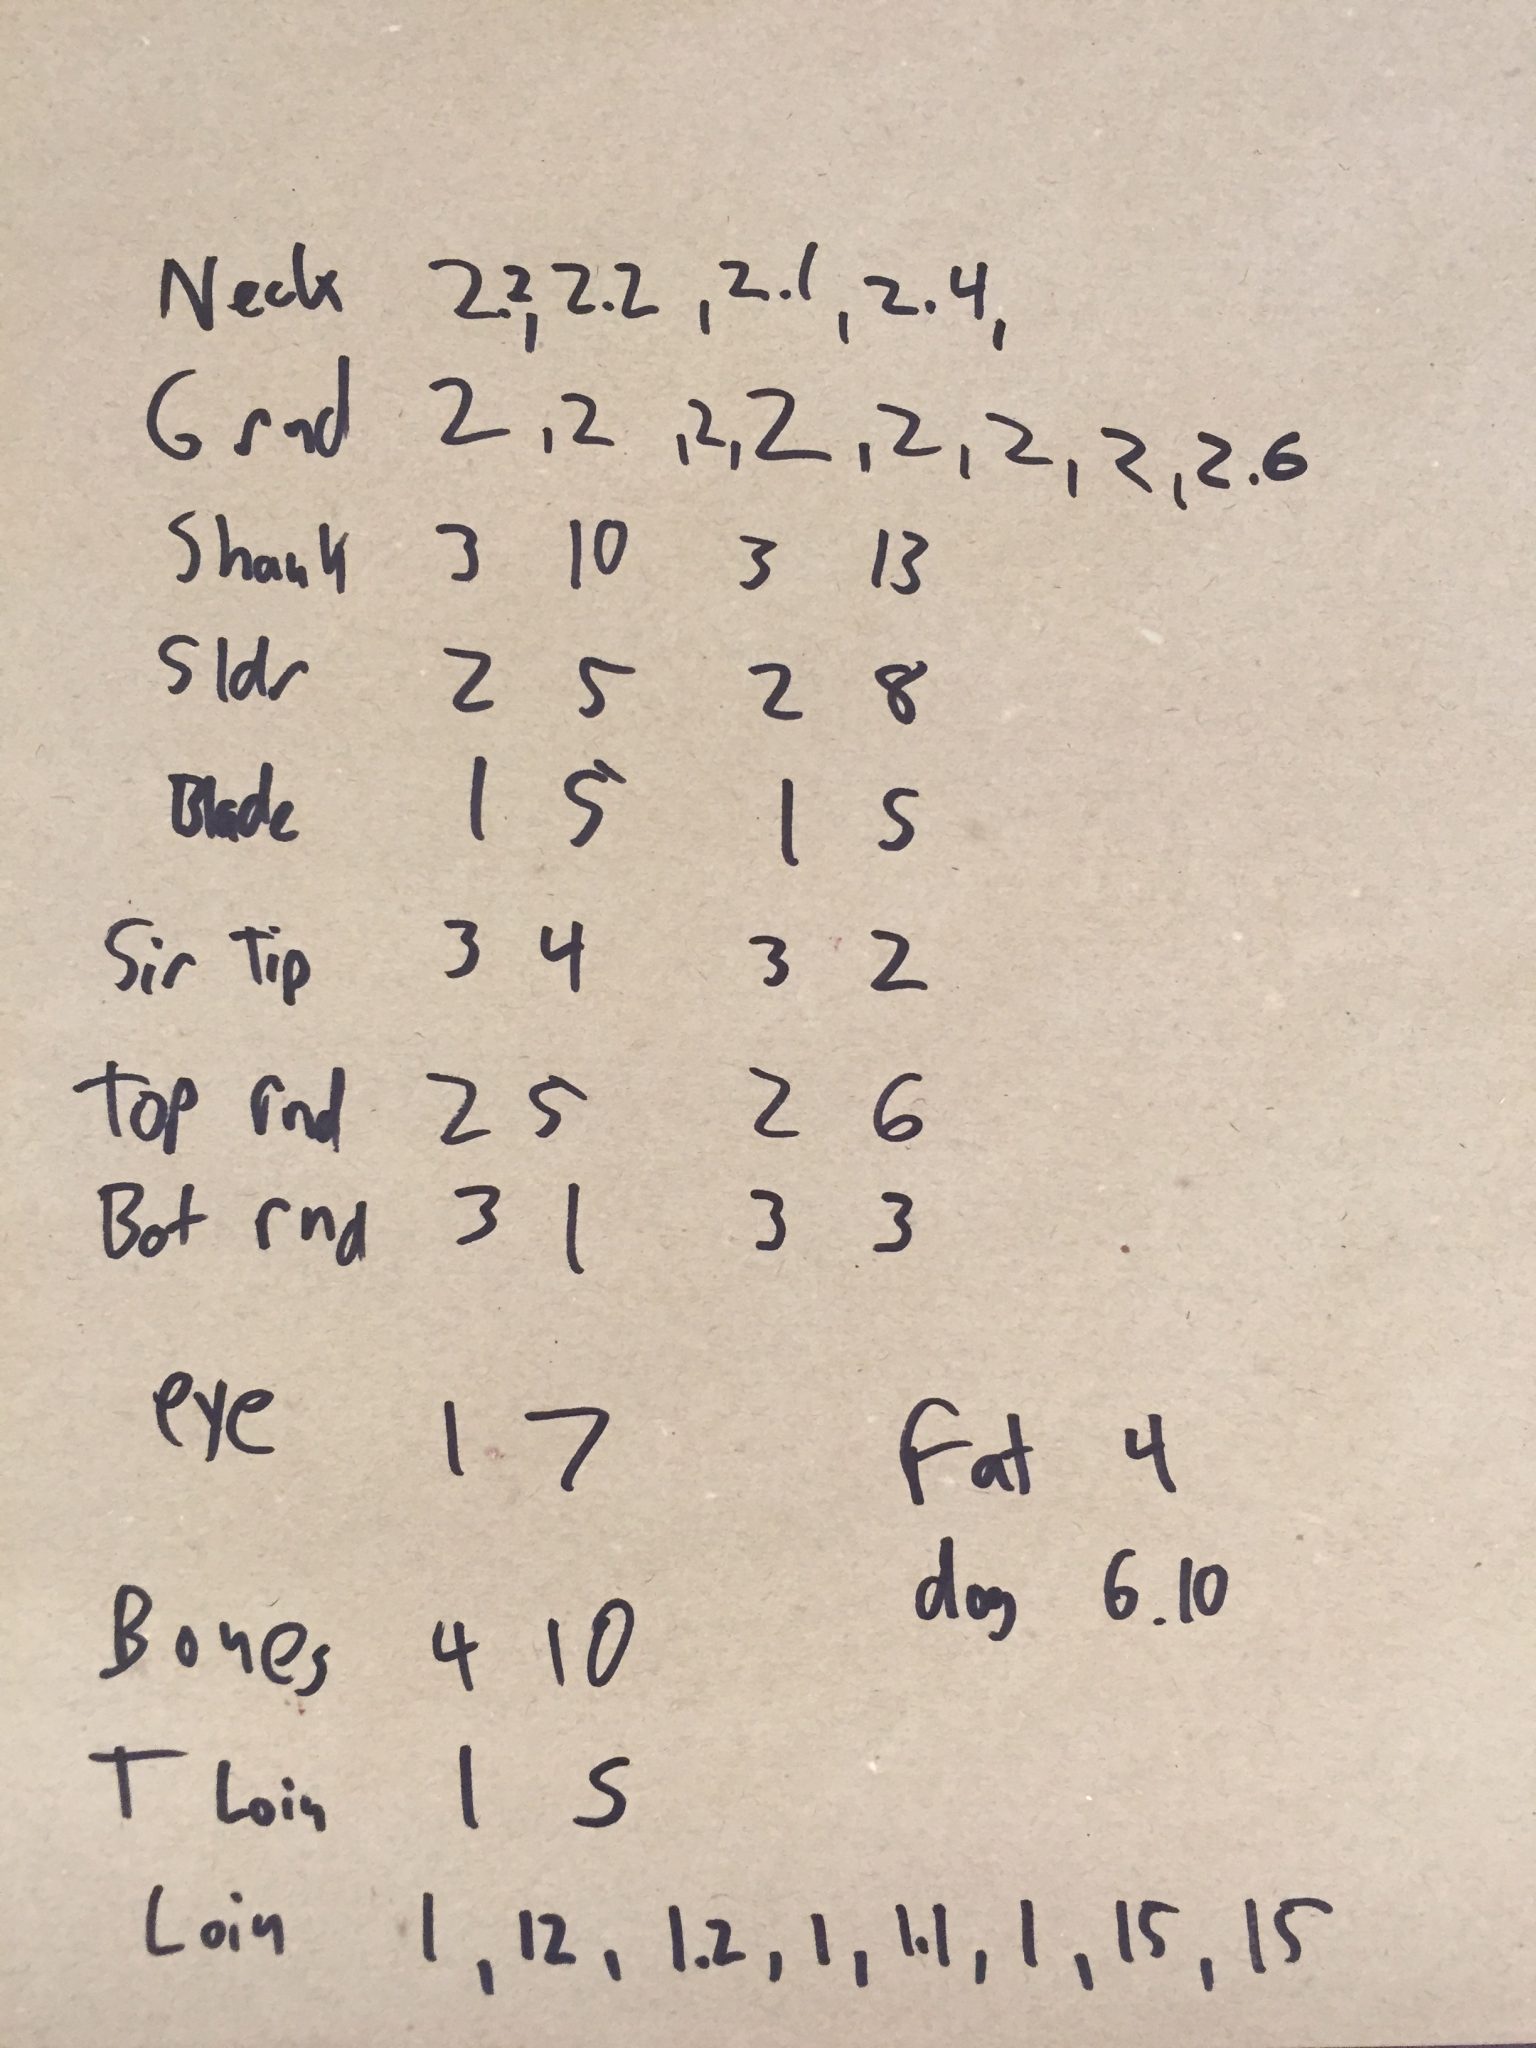 Neck 2.2, 2.2, 2.1, 2.4,
Grnd 2, 2, 2, 2, 2, 2, 2, 2.6
Shank 3 10 3 13
Sldr 2 5 2 8
Blade 1 5 1 5
Sir Tip 3 4 3 2
Top rnd 2 5 2 6
Bot rnd 3 1 3 3
eye 1 7
Fat 4
dog 6.10
Bones 4 10
T Loin 1 5
Loin 1, 12, 1.2, 1, 1.1, 1, 15, 15